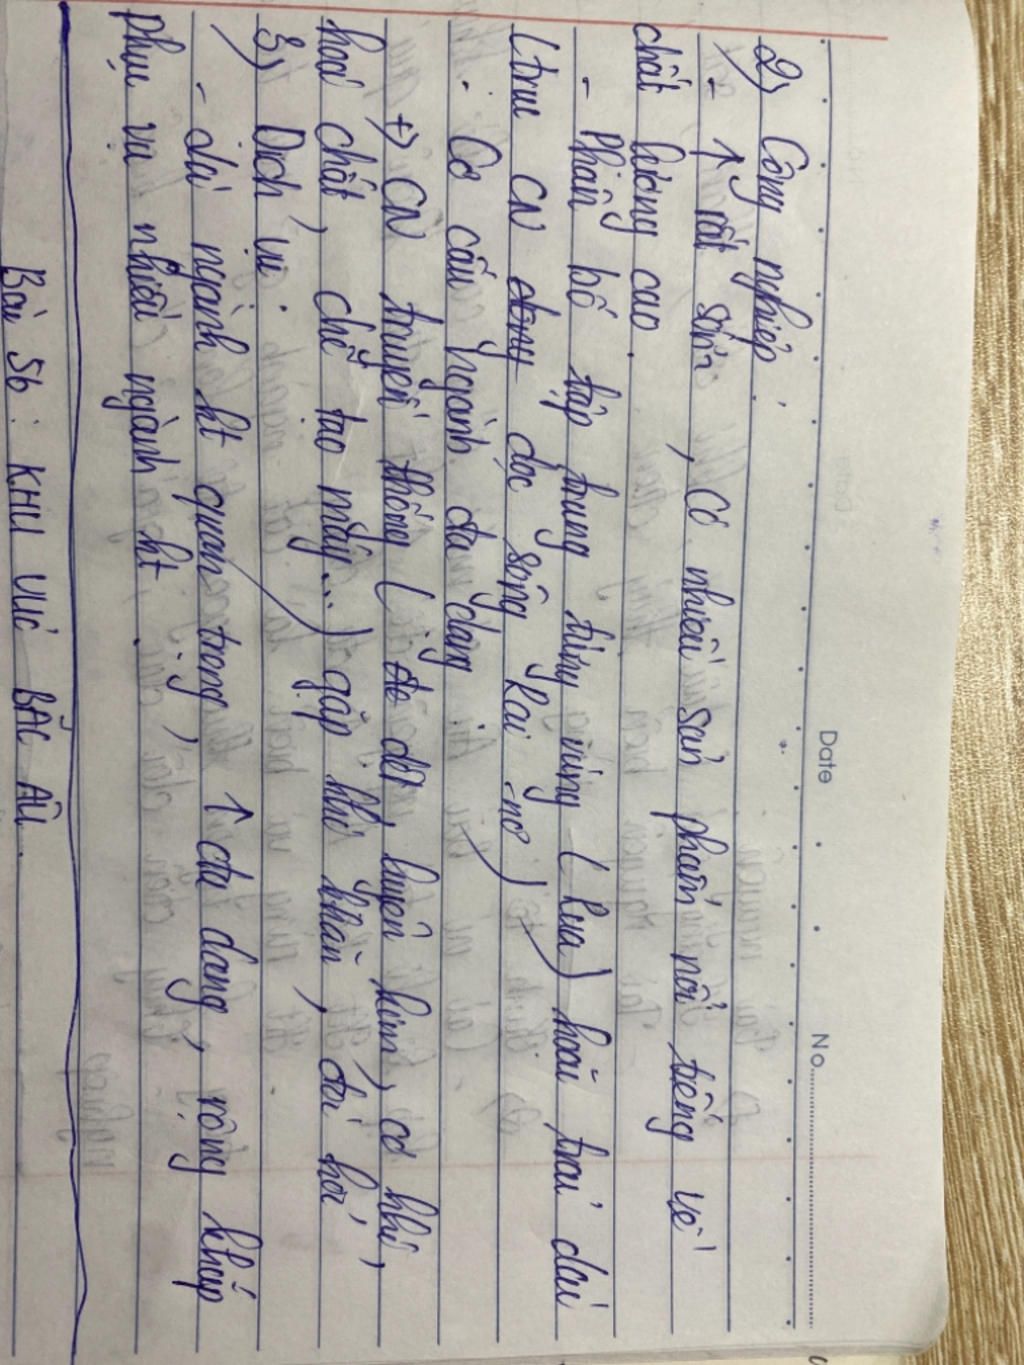 Date No
2) Công nghiệp.
- ↑ rất sớm, có nhiều sản phẩm nổi tiếng về
chất lượng cao.
- Phân bố tập trung từng vùng (lua) hoặc trải dài
(trục CN dọc sông Rai-nơ)
- Cơ cấu ngành đa dạng
+) CN truyền thống (dệt, luyện kim, cơ khí,
hoá chất, chế tạo máy...) gặp khó khăn, đòi hỏi
3) Dịch vụ.
- Là ngành kt quan trọng, ↑ đa dạng, rộng khắp
phục vụ nhiều ngành kt.
Bài 56: KHU VỰC BẮC ÂU.